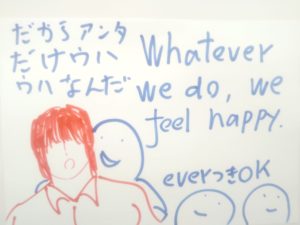 だからアンタ
だけウハ
ウハなんだ
Whatever
we do, we
feel happy.
everつきOK